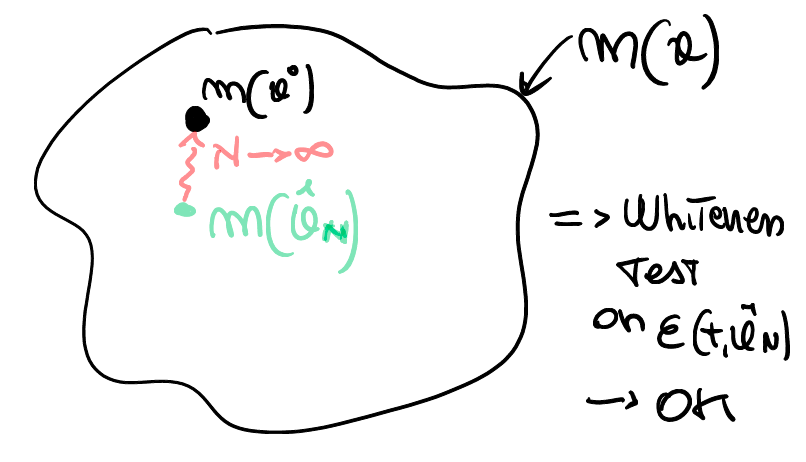 m(ϑ)
m(ϑ°)
N → ∞
m(ϑ̂_N)
=> Whiteness
Test
on ε(t, ϑ̂_N)
→ OK